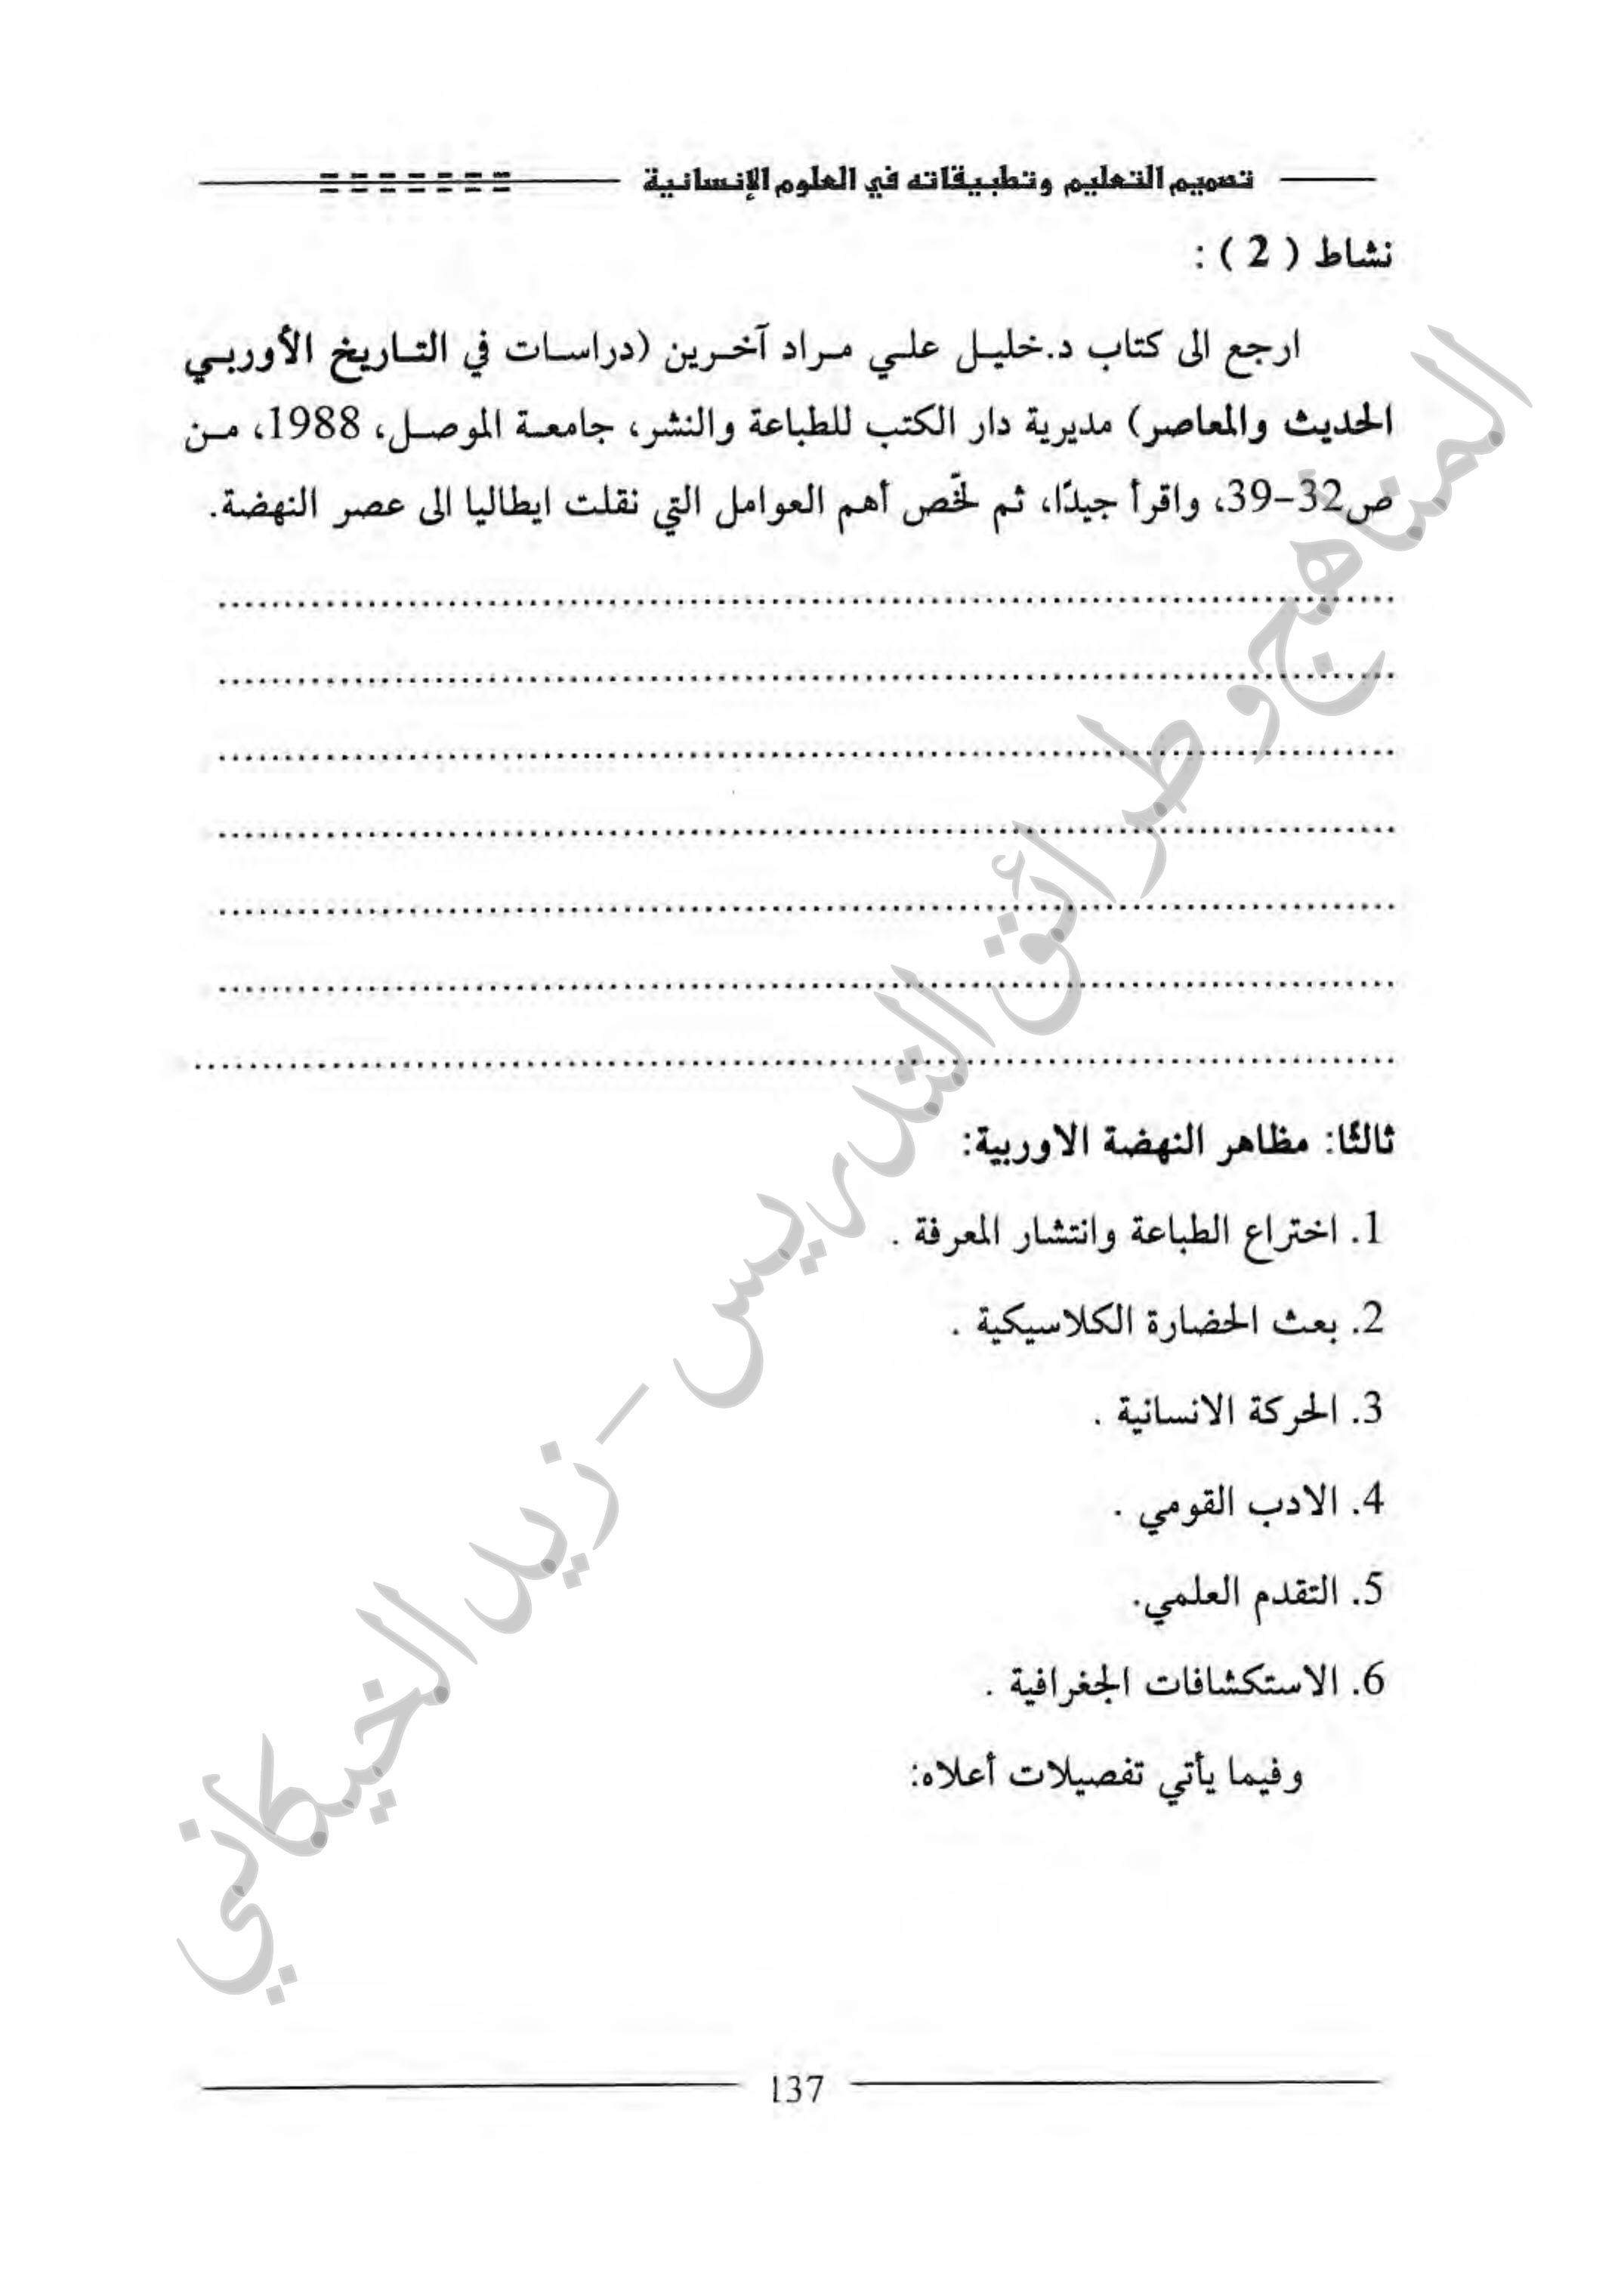 تصميم التعليم وتطبيقاته في العلوم الإنسانية
نشاط ( 2 ) :
ارجع الى كتاب د.خليل علي مراد آخرين (دراسات في التاريخ الأوربي
الحديث والمعاصر) مديرية دار الكتب للطباعة والنشر، جامعة الموصل، 1988، من
ص32-39، واقرأ جيدًا، ثم لخّص أهم العوامل التي نقلت ايطاليا الى عصر النهضة.
ثالثًا: مظاهر النهضة الاوربية:
1. اختراع الطباعة وانتشار المعرفة .
2. بعث الحضارة الكلاسيكية .
3. الحركة الانسانية .
4. الادب القومي .
5. التقدم العلمي.
6. الاستكشافات الجغرافية .
وفيما يأتي تفصيلات أعلاه:
137
المناهج وطرائق التدريس - زيد الخيكاني